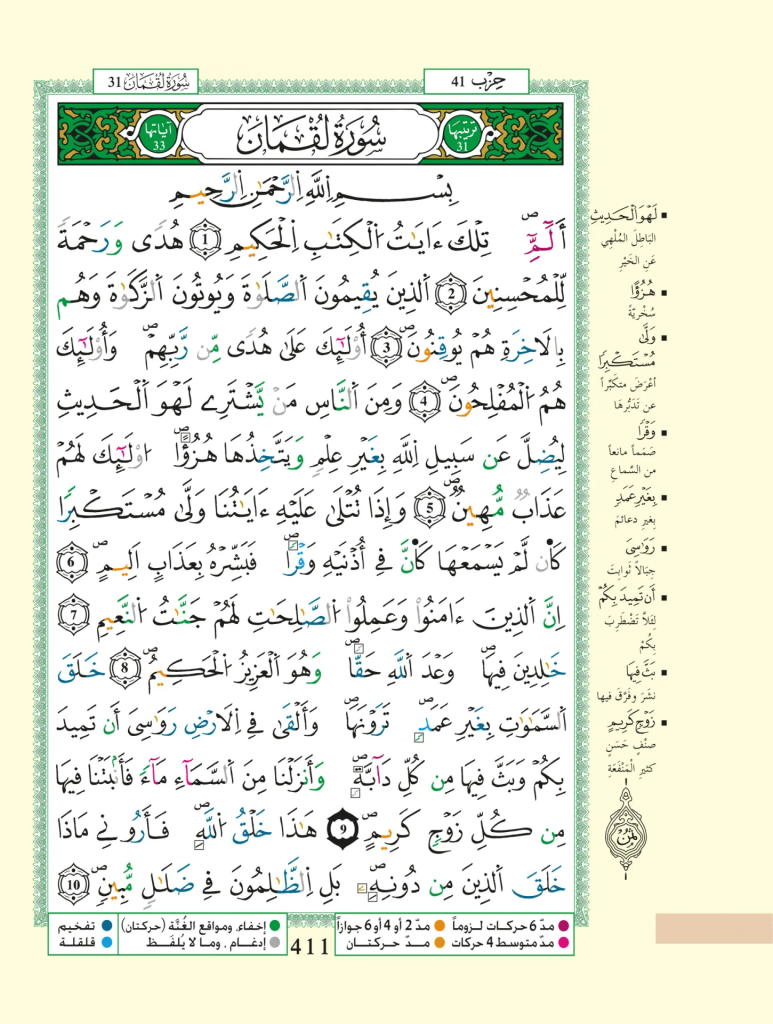 حِزْب 41
سُورَةُ لُقْمَان 31
ترتيبها 31
سُورَةُ لُقْمَان
آياتها 33
بِسْمِ اِ۬للَّهِ اِ۬لرَّحْمَٰنِ اِ۬لرَّحِيمِ
أَلَٓمِّٓۖ تِلْكَ ءَايَٰتُ اُ۬لْكِتَٰبِ اِ۬لْحَكِيمِ 1 هُدىٗ وَرَحْمَةٗ
لِّلْمُحْسِنِينَ 2 اَ۬لذِينَ يُقِيمُونَ اَ۬لصَّلَوٰةَ وَيُوتُونَ اَ۬لزَّكَوٰةَ وَهُم
بِالَاخِرَةِ هُمْ يُوقِنُونَۖ 3 أُوْلَٰٓئِكَ عَلَىٰ هُدىٗ مِّن رَّبِّهِمْۖ وَأُوْلَٰٓئِكَ
هُمُ اُ۬لْمُفْلِحُونَۖ 4 وَمِنَ اَ۬لنَّاسِ مَنْ يَّشْتَرِے لَهْوَ اَ۬لْحَدِيثِ
لِيُضِلَّ عَن سَبِيلِ اِ۬للَّهِ بِغَيْرِ عِلْمٖ وَيَتَّخِذُهَا هُزُؤاًۖ ا۟وْلَٰٓئِكَ لَهُمْ
عَذَابٞ مُّهِينٞۖ 5 وَإِذَا تُتْلَىٰ عَلَيْهِ ءَايَٰتُنَا وَلَّىٰ مُسْتَكْبِراٗ
كَأَن لَّمْ يَسْمَعْهَا كَأَنَّ فِے أُذْنَيْهِ وَقْراٗۖ فَبَشِّرْهُ بِعَذَابٍ اَلِيمٍۖ 6
اِنَّ اَ۬لذِينَ ءَامَنُواْ وَعَمِلُواْ اُ۬لصَّٰلِحَٰتِ لَهُمْ جَنَّٰتُ اُ۬لنَّعِيمِ 7
خَٰلِدِينَ فِيهَاۖ وَعْدَ اَ۬للَّهِ حَقّاٗۖ وَهُوَ اَ۬لْعَزِيزُ اُ۬لْحَكِيمُۖ 8 خَلَقَ
اَ۬لسَّمَٰوَٰتِ بِغَيْرِ عَمَدٖۖ تَرَوْنَهَاۖ وَأَلْقَىٰ فِے اِ۬لَارْضِ رَوَٰسِيَ أَن تَمِيدَ
بِكُمْ وَبَثَّ فِيهَا مِن كُلِّ دَآبَّةٖۖ وَأَنزَلْنَا مِنَ اَ۬لسَّمَآءِ مَآءٗ فَأَنۢبَتْنَا فِيهَا
مِن كُلِّ زَوْجٖ كَرِيمٍۖ 9 هَٰذَا خَلْقُ اُ۬للَّهِۖ فَأَرُونِے مَاذَا
خَلَقَ اَ۬لذِينَ مِن دُونِهِۦۖ بَلِ اِ۬لظَّٰلِمُونَ فِے ضَلَٰلٖ مُّبِينٖۖ 10
▪ لَهْوَ اَ۬لْحَدِيثِ
البَاطِلَ المُلْهِي
عَنِ الخَيْرِ
▪ هُزُؤاً
سُخْرِيَّةً
▪ وَلَّىٰ
مُسْتَكْبِراٗ
أَعْرَضَ متَكبِّراً
عن تَدَبُّرِهَا
▪ وَقْراٗ
صَمَماً مانعاً
من السَّماعِ
▪ بِغَيْرِ عَمَدٖ
بغيرِ دعائمَ
▪ رَوَٰسِيَ
جِبَالاً ثَوابِتَ
▪ أَن تَمِيدَ بِكُمْ
لِئَلاَّ تَضْطَرِبَ
بكُمْ
▪ بَثَّ فِيهَا
نشَرَ وفَرَّقَ فيها
▪ زَوْجٖ كَرِيمٍ
صنْفٍ حَسَنٍ
كثيرِ المَنْفَعَةِ
ثُمُن
مدّ 6 حركات لـزوماً مدّ 2 أو 4 أو 6 جوازاً
مدّ متوسط 4 حركات مـدّ حركتـان
411
إخفاء، ومواقع الغُنَّة (حركتان) تفخيم
إدغـام ، ومـا لا يُلفَـظ قلقلة